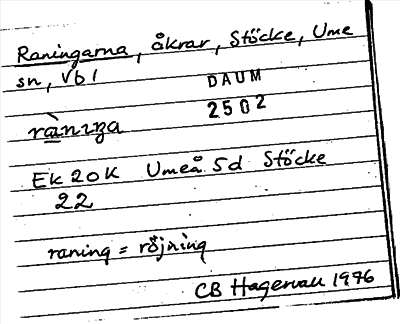 Raningarna, åkrar, Stöcke, Ume
sn, Vb l
DAUM
2502
rànıŋa
Ek 20K Umeå 5d Stöcke
22
raning = röjning
CB Hagervall 1976